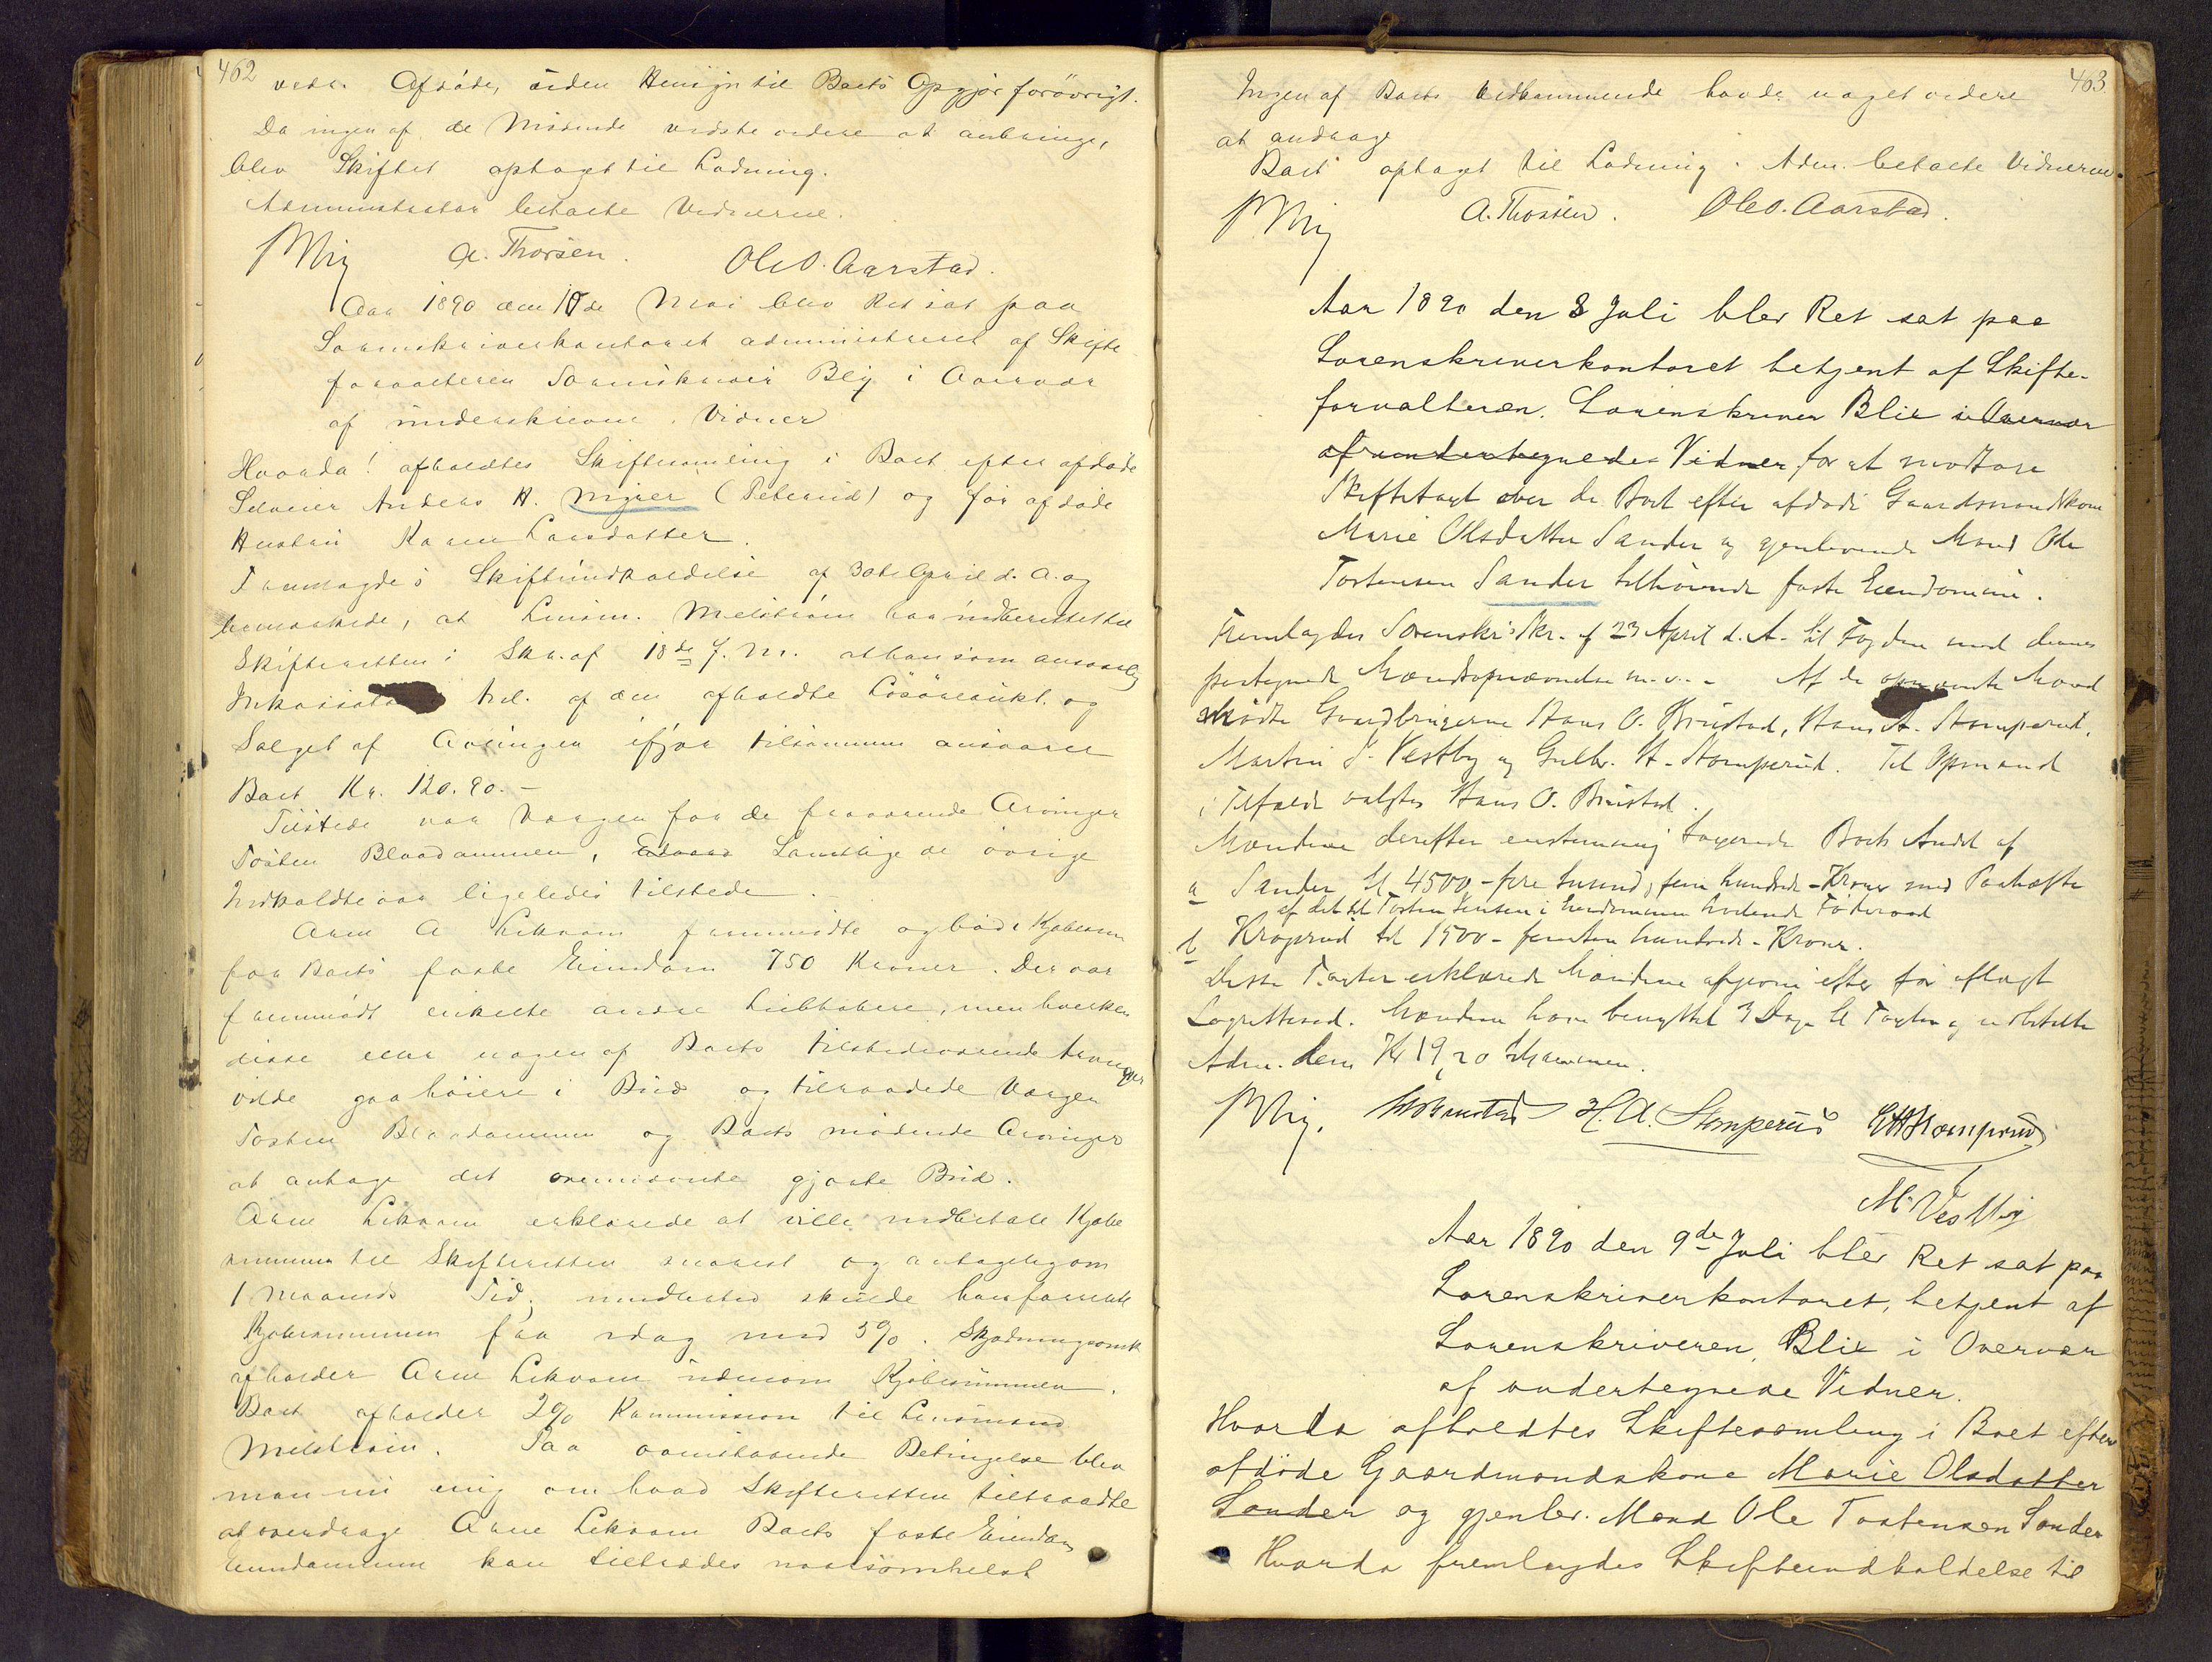 462
vedk. Afdøde, uden Hensyn til Boets Opgjør forøvrigt.
Da ingen af de Mødende vidste videre at anbringe,
blev Skiftet optaget til Lodning.
Administrator betalte Vidnerne.
Blix A. Thorsen. Ole O. Aarstad.
Aar 1890 den de Mai blev Ret sat paa
Sorenskriverkontoret administreret af Skifte
forvalteren Sorenskriver Blix i Overvær
af underskrevne Vidner
Hvorda! afholdtes Skiftesamling i Boet efter afdøde
Selveier Anders H. Myrer (Peterud) og før afdøde
Hustru Karen Larsdatter.
Fremlagdes Skifteindkaldelse af 30te April d. A. og
bemærkede, at Lensm. Melstrøm har indberettet til
Skifteretten i Skr. af 18de f. M. at han som ansvarlig
Inkassator hel. af den afholdte Løsøreaukt. og
Salget af Avlingen ifjor tilsammen ansvarer
Boet Kr. 120.90.-
Tilstede var Værgen for de fraværende Arvinger
Tosten Blaadammen, Samtlige de øvrige
Indkaldte var ligeledes tilstede.
Arne A Lekvam fremmødte og bød i Kjøbesum
for Boets faste Eiendom 750 Kroner. Der var
fremmødt enkelte andre Liebhabere, men hverken
disse eller nogen af Boets tilstedeværende Arvinger
vilde gaa høiere i Bud og tilraadede Værgen
Tosten Blaadammen og Boets mødende Arvinger
at antage det ovennævnte gjorte Bud.
Arne Lekvam erklærede at ville indbetale Kjøbe
summen til Skifteretten snarest og antagelig om
1 Maaneds Tid; imidlertid skulde han forrente
Kjøbesummen fra idag med 5%. Skjødningsomk
afholder Arne Lekvam udenom Kjøbesummen.
Boet afholder 2% Kommission til Lensmand
Melstrøm. Paa ovenstaaende Betingelse blev
man nu enig om hvad Skifteretten tiltraadte
at overdrage Arne Lekvam Boets faste Eiendom
Eiendommen kan tiltrædes naarsomhelst
463.
Ingen af Boets Vedkommende havde noget videre
at andrage
Boet optaget til Lodning. Adm. betalte Vidnerne.
Blix A. Thorsen. Ole O. Aarstad.
Aar 1890 den 8 Juli blev Ret sat paa
Sorenskriverkontoret betjent af Skifte-
forvalteren. Sorenskriver Blix i Overvær
af undertegnede Vidner for at modtage
Skiftetaxt over de Boet efter afdøde Gaardmandskone
Marie Olsdatter Sander og gjenlevende Mand Ole
Tostensen Sander tilhørende faste Eiendomme.
Fremlagdes Sorenskr.s Skr. af 23 April d. A. til Fogden med dennes
paategnede Mændsopnævnelse m. v. - Af de opnævnte Mænd
mødte Gaardbrugerne Hans O. Brustad, Hans A. Stomperud,
Martin J. Vestby og Gulbr. H. Stomperud. Til Opmand
i Tilfælde valgtes Hans O. Brustad.
Mændene derefter enstemmig taxerede Boets Andel af
a Sander til 4500 - fire tusind, fem hundrede - Kroner med Paahæfte
af det til Tosten Jensen i Eiendommen heftende Føderaad
b Kroprud til 1500 - femten hundrede - Kroner.
Disse Taxter erklærede Mændene afgivne efter før aflagt
Lagretteed. Mændene have benyttet 3 Dage til Taxten og udbetalte
Adm. dem Kr 19,20 tilsammen.
Blix. H. O. Brustad H. A. Stomperud G H Stomperud
M. Vestby
Aar 1890 den 9de Juli blev Ret sat paa
Sorenskriverkontoret, betjent af
Sorenskriveren Blix i Overvær
af undertegnede Vidner.
Hvorda afholdtes Skiftesamling i Boet efter
afdøde Gaardmandskone Marie Olsdatter
Sander og gjenlev. Mand Ole Tostensen Sander
Hvorda fremlagdes Skifteindkaldelse til